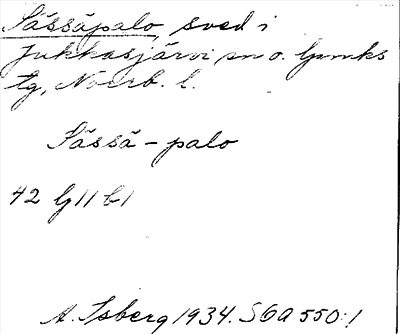 Sässäpalo, sved i
Jukkasjärvi sn o. lpmks
tg, Norrb. l.
Sässä-palo
42 G11 b1
A. Isberg 1934. SOA 550:1